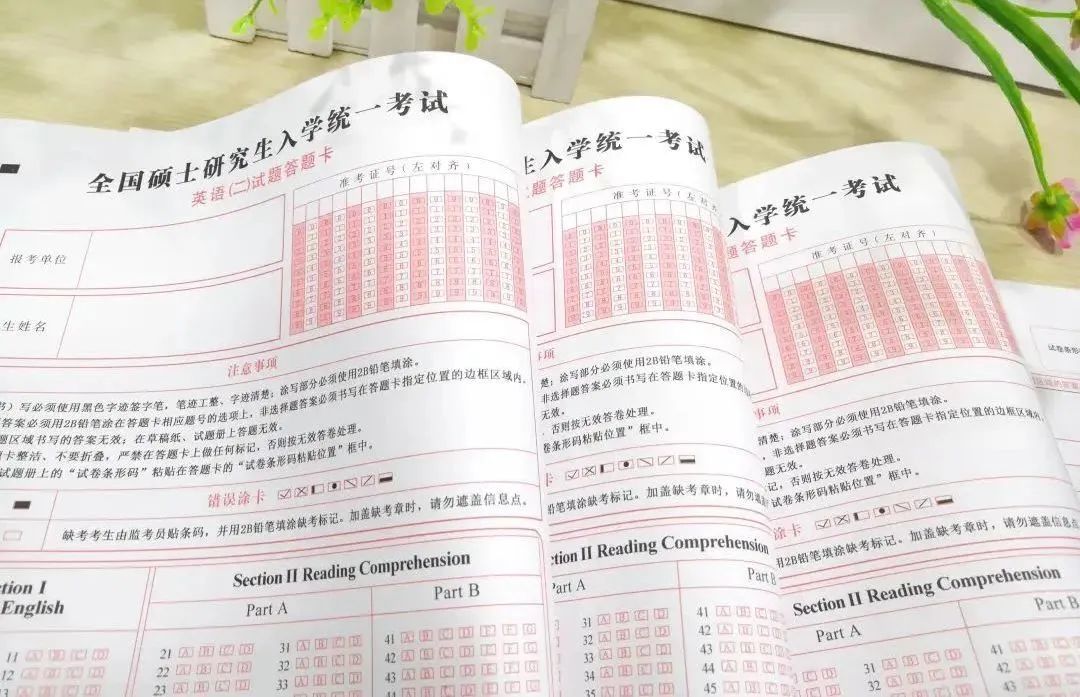 全国硕士研究生入学统一考试
英语(二)试题答题卡
准考证号(左对齐)
报考单位
生姓名
注意事项
写必须使用黑色字迹签字笔，笔迹工整、字迹清楚；涂写部分必须使用2B铅笔填涂。
答案必须用2B铅笔涂在答题卡相应题号的选项上，非选择题答案必须书写在答题卡指定位置的边框区域内。
题区域书写的答案无效；在草稿纸、试题册上答题无效。
卡整洁、不要折叠，严禁在答题卡上做任何标记，否则按无效答卷处理。
试题册上的“试卷条形码”粘贴在答题卡的“试卷条形码粘贴位置”框中。
错误涂卡
缺考考生由监考员贴条码，并用2B铅笔填涂缺考标记。加盖缺考章时，请勿遮盖信息点。
tion I
English
Section II Reading Comprehension
Part A
Part B
11 A B C D
12 A B C D
13
21 A B C D
22 A B C D
23 A B C D
31 A B C D
32 A B C D
33 A B C D
41 A B C D E F G
42 A B C D E F G
43 A B C D E F G
生入学统一考试
题答题卡
准考证号(左对齐)
事项
楚；涂写部分必须使用2B铅笔填涂。
非选择题答案必须书写在答题卡指定位置的
无效。
否则按无效答卷处理。
卷条形码粘贴位置”框中。
铅笔填涂缺考标记。加盖缺考章时，请勿遮盖信息点
tion II Reading Comprehension
Part A
Part B
31 A B C D
32 A B C D
33 A B C D
34 A B C D
35 A B C D
41
42
43
44
45
入学统一考试
题答题卡
准考证号(左对齐)
事项
清楚；涂写部分必须使用2B铅笔填涂。
，非选择题答案必须书写在答题卡指定位置的边框区域内
题无效。
记，否则按无效答卷处理。
试卷条形码粘贴位置”框中。
涂卡
2B铅笔填涂缺考标记。加盖缺考章时，请勿遮盖信息点
Section II Reading Comprehension
Part A
Part B
31 A B C D
32
41
42
43
试卷条形